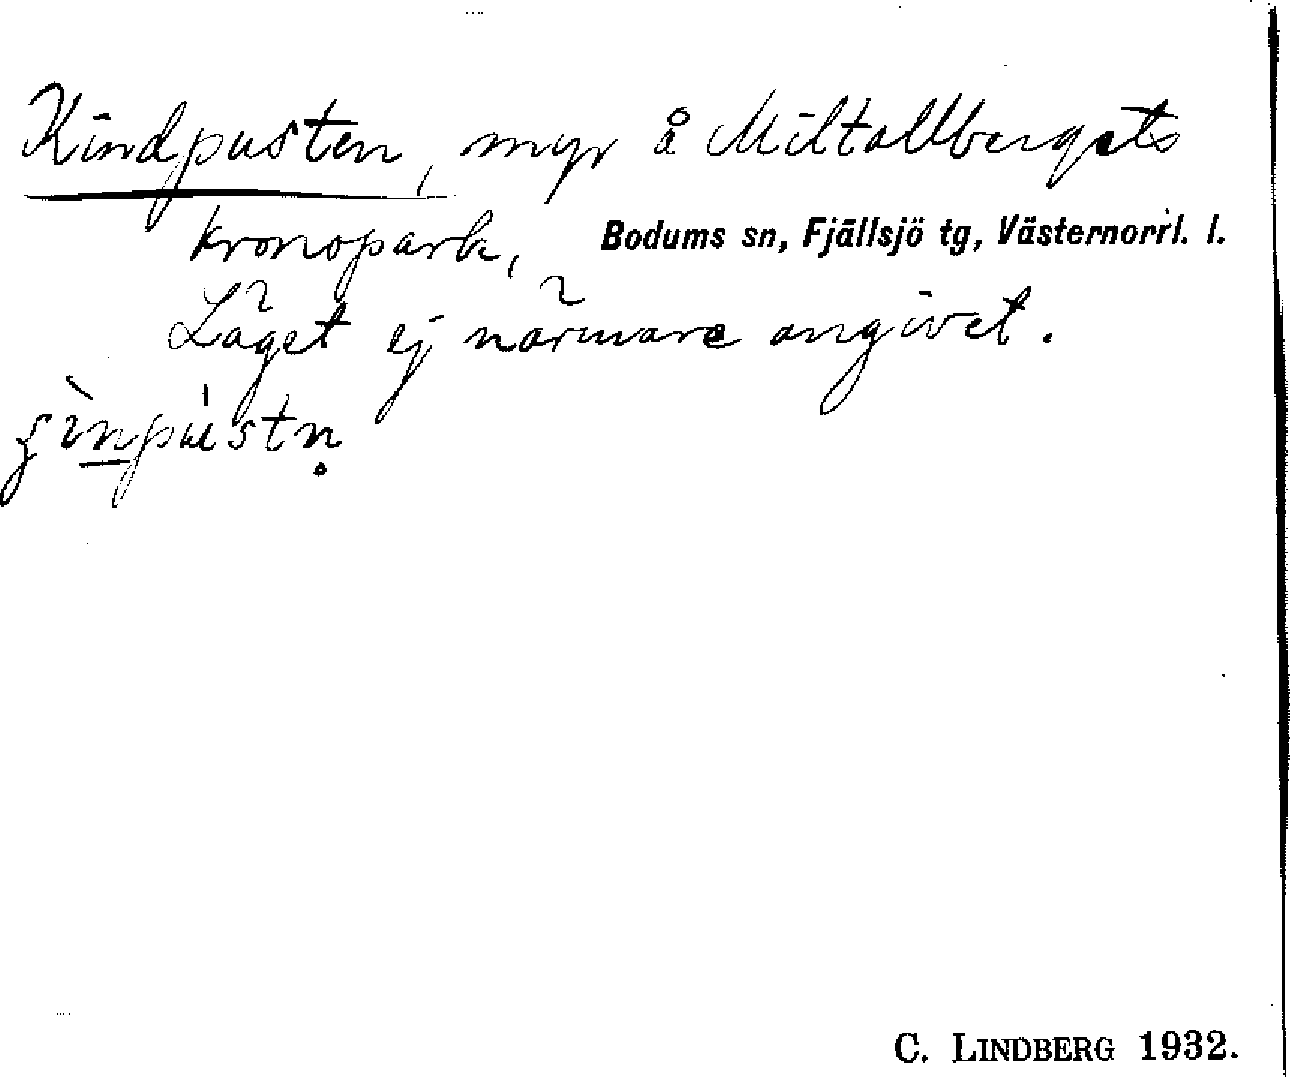 Kindpusten, myr å Miltallbergets
kronopark, Bodums sn, Fjällsjö tg, Västernorrl. l.
Läget ej närmare angivet.
C. LINDBERG 1932.